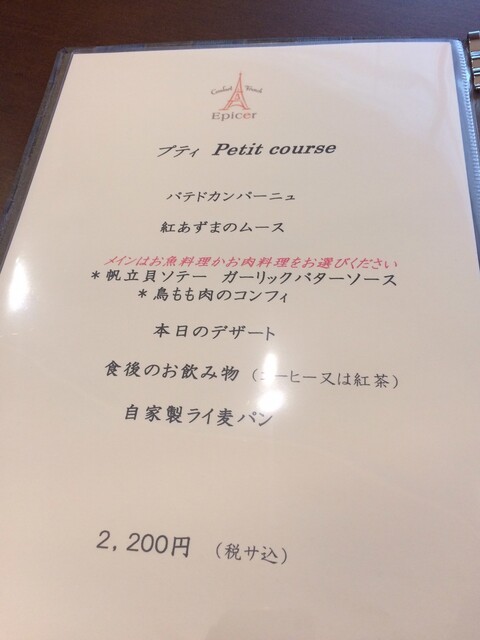 Comfort French
Epicer
プティ Petit course
パテドカンパーニュ
紅あずまのムース
メインはお魚料理かお肉料理をお選びください
*帆立貝ソテー ガーリックバターソース
*鳥もも肉のコンフィ
本日のデザート
食後のお飲み物 (コーヒー又は紅茶)
自家製ライ麦パン
2,200円 (税サ込)